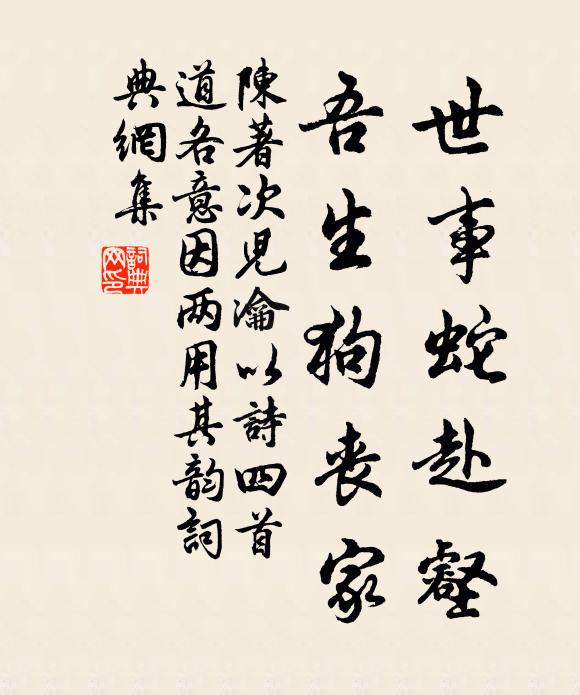 世事蛇赴壑
吾生狗丧家
陳著次兒瀹以詩四首
道各意因两用其韵詞
典網集
詞典网印